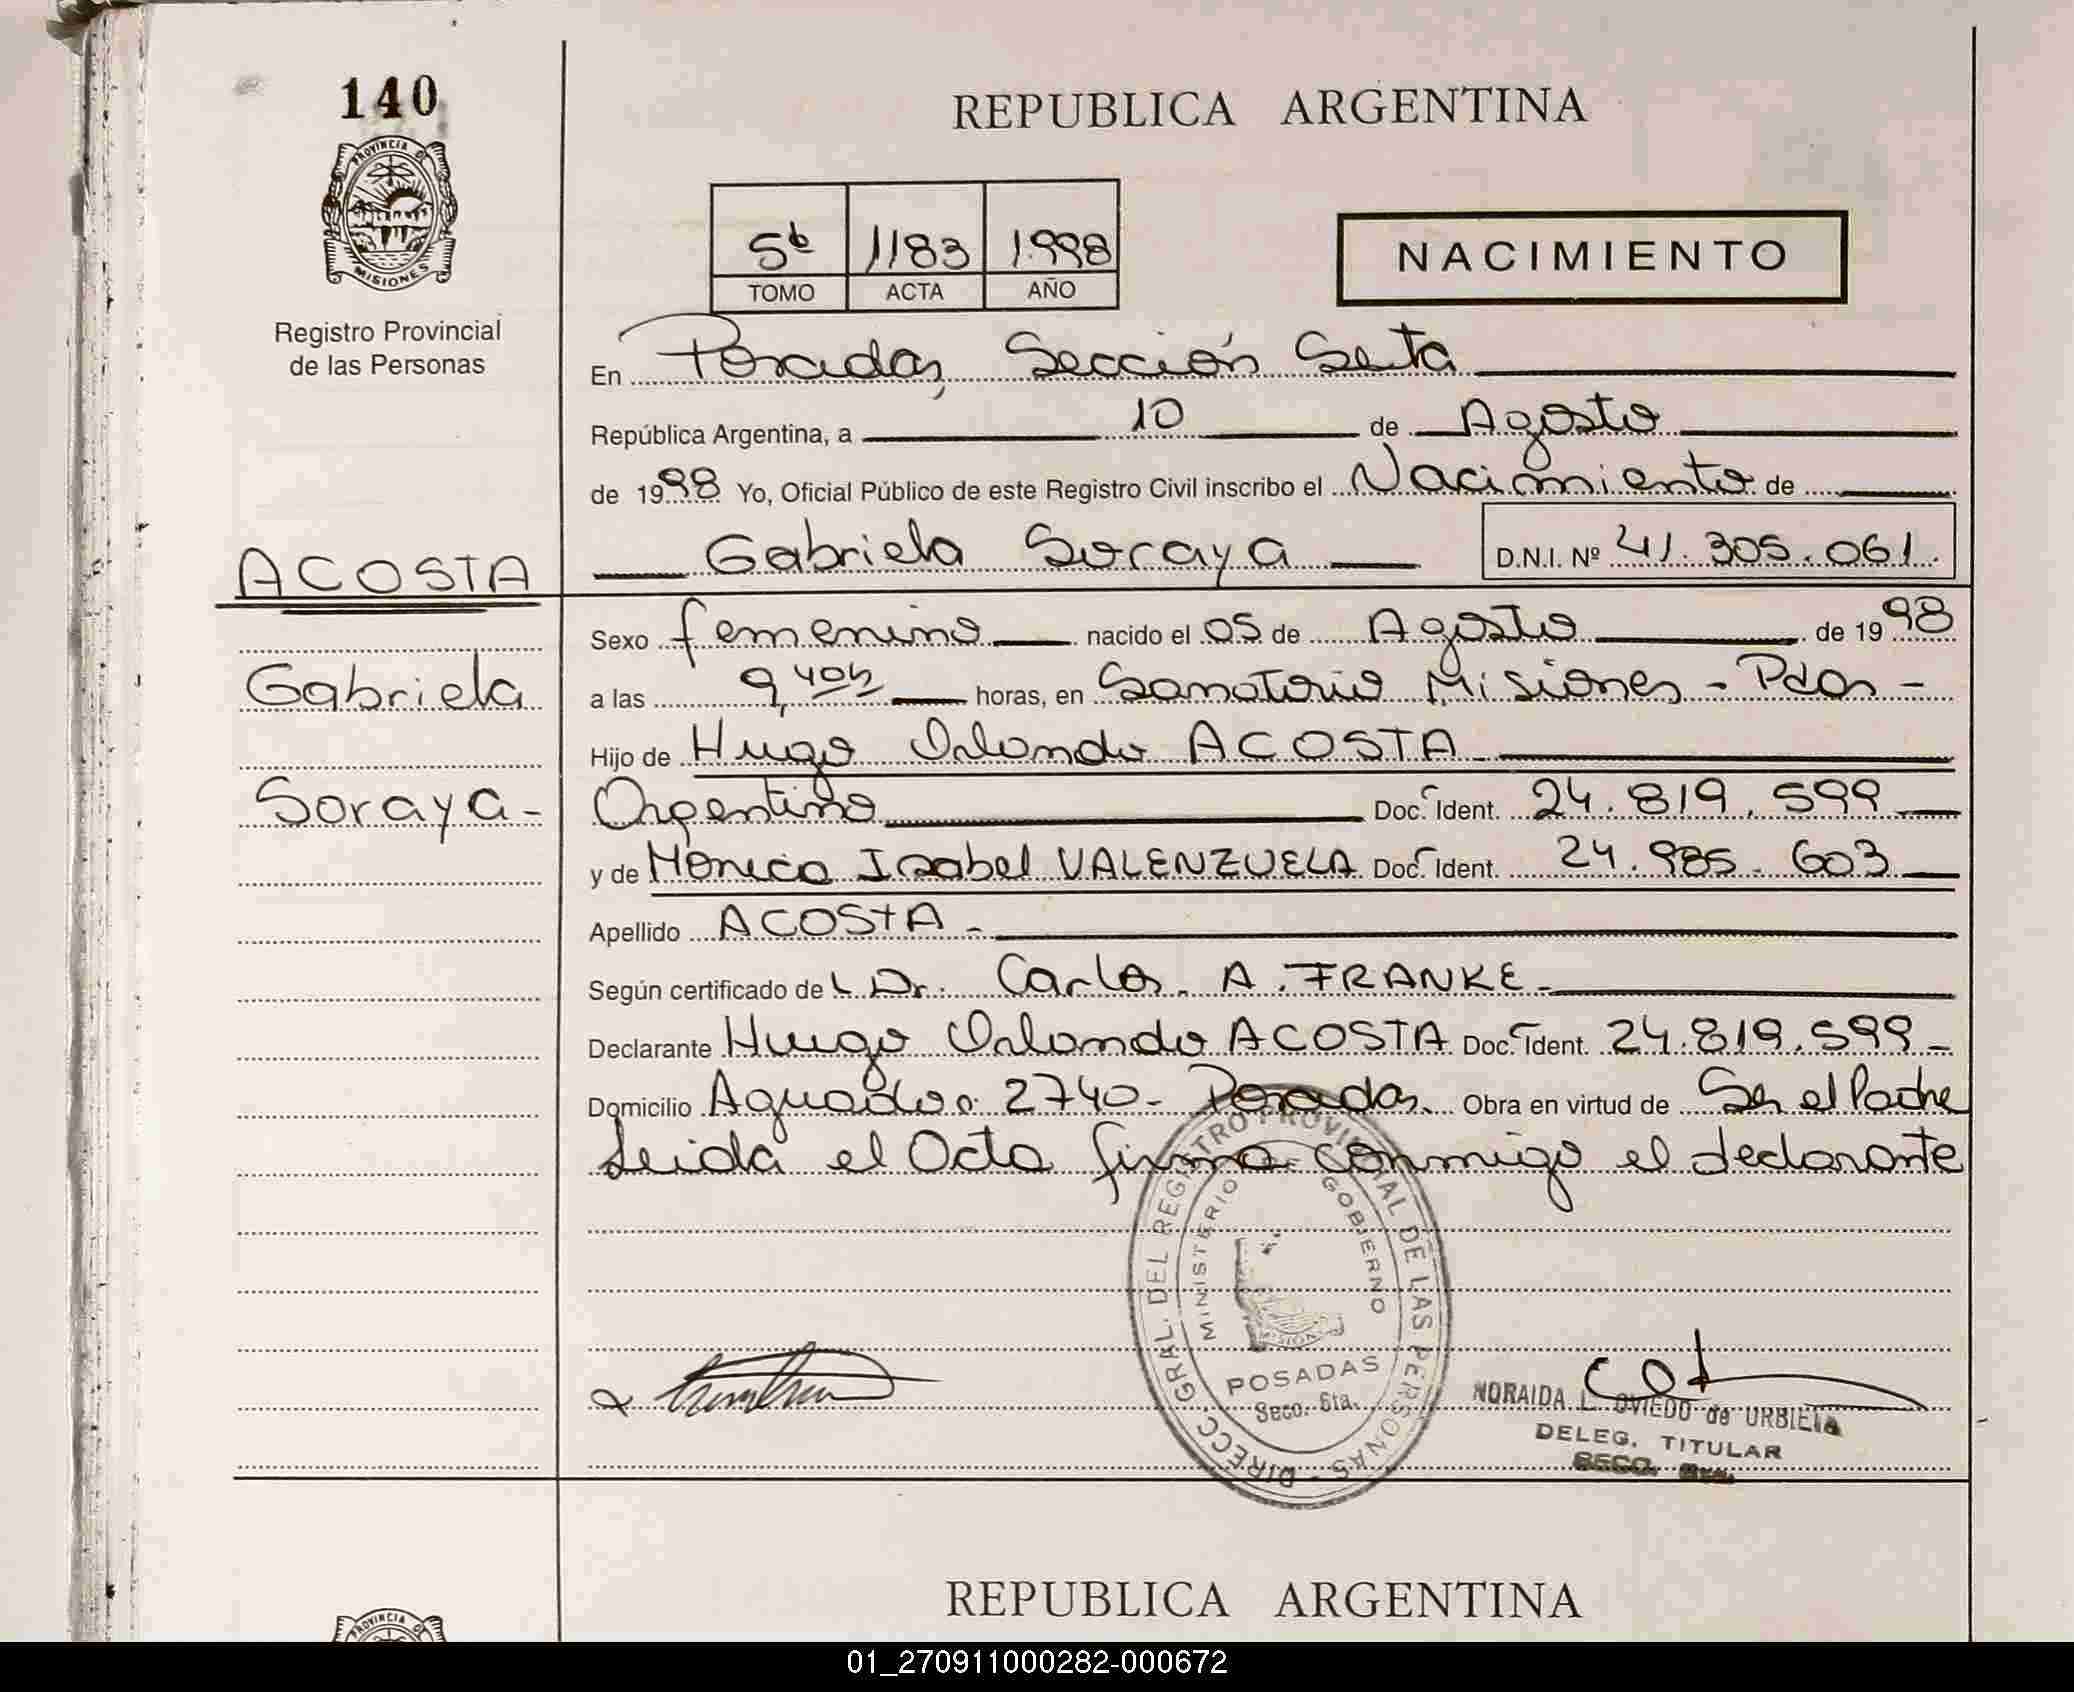 140
PROVINCIA DE
MISIONES
Registro Provincial
de las Personas
REPUBLICA ARGENTINA
5b 1183 1998
TOMO ACTA AÑO
NACIMIENTO
En Posadas, Sección Sexta
República Argentina, a 10 de Agosto
de 1998 Yo, Oficial Público de este Registro Civil inscribo el Nacimiento de
Gabriela Soraya D.N.I. Nº 41.305.061.
ACOSTA
Gabriela
Soraya-
Sexo femenino nacido el 05 de Agosto de 1998
a las 9,40h horas, en Sanatorio Misiones - Pdas -
Hijo de Hugo Orlando ACOSTA
Argentino Doc. Ident. 24.819.599
y de Mónica Isabel VALENZUELA Doc. Ident. 24.985.603
Apellido ACOSTA -
Según certificado de L Dr. Carlos A. FRANKE -
Declarante Hugo Orlando ACOSTA Doc. Ident. 24.819.599 -
Domicilio Aguado 2740 - Posadas Obra en virtud de Ser el Padre
Leida el Acta firma conmigo el declarante
DIRECC. GRAL. DEL REGISTRO PROVINCIAL DE LAS PERSONAS -
MINISTERIO GOBIERNO
MISIONES
POSADAS
Secc. 6ta.
NORAIDA L. OVIEDO de URBIETA
DELEG. TITULAR
SECC. 6ta.
REPUBLICA ARGENTINA
PROVINCIA
01_270911000282-000672